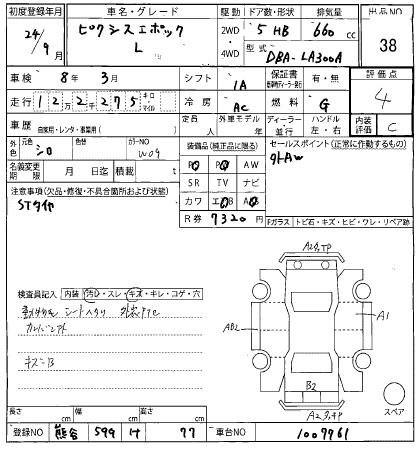 初度登録年月 車名・グレード 駆動 ドア数・形状 排気量 出品NO
24/9月 ピクシスエポック 2WD 5 HB 660 cc 38
L 4WD 型式 DBA-LA300A
車検 8年 3月 シフト IA 保証書 有・無 評価点
走行 122千275 キロ・マイル 冷房 AC 燃料 G 4
車歴 自家用・レンタ・事業用( ) 定員 人 外車モデル 年 ディーラー・並行 ハンドル 左・右 内装評価 C
外色 元色 シロ 色替 カラーNO W09 装備品(純正品に限る) セールスポイント(正常に作動するもの)
名義変更期限 月 日迄 積載 t PS PW AW 外AW
注意事項(欠品・修復・不具合箇所および状態) SR TV ナビ
STタイヤ カワ エアB
R券 7320 円 Fガラス トビ石・キズ・ヒビ・ワレ・リペア跡
A2分,TP
検査員記入 内装 汚レ・スレ・キズ・キレ・コゲ・穴
シートヘタリ
AB2 A1
キズ=B
B2
A2分,TP スペア
長さ cm 幅 cm 高さ cm
登録NO 熊谷 599 け 77 車台NO 1007961